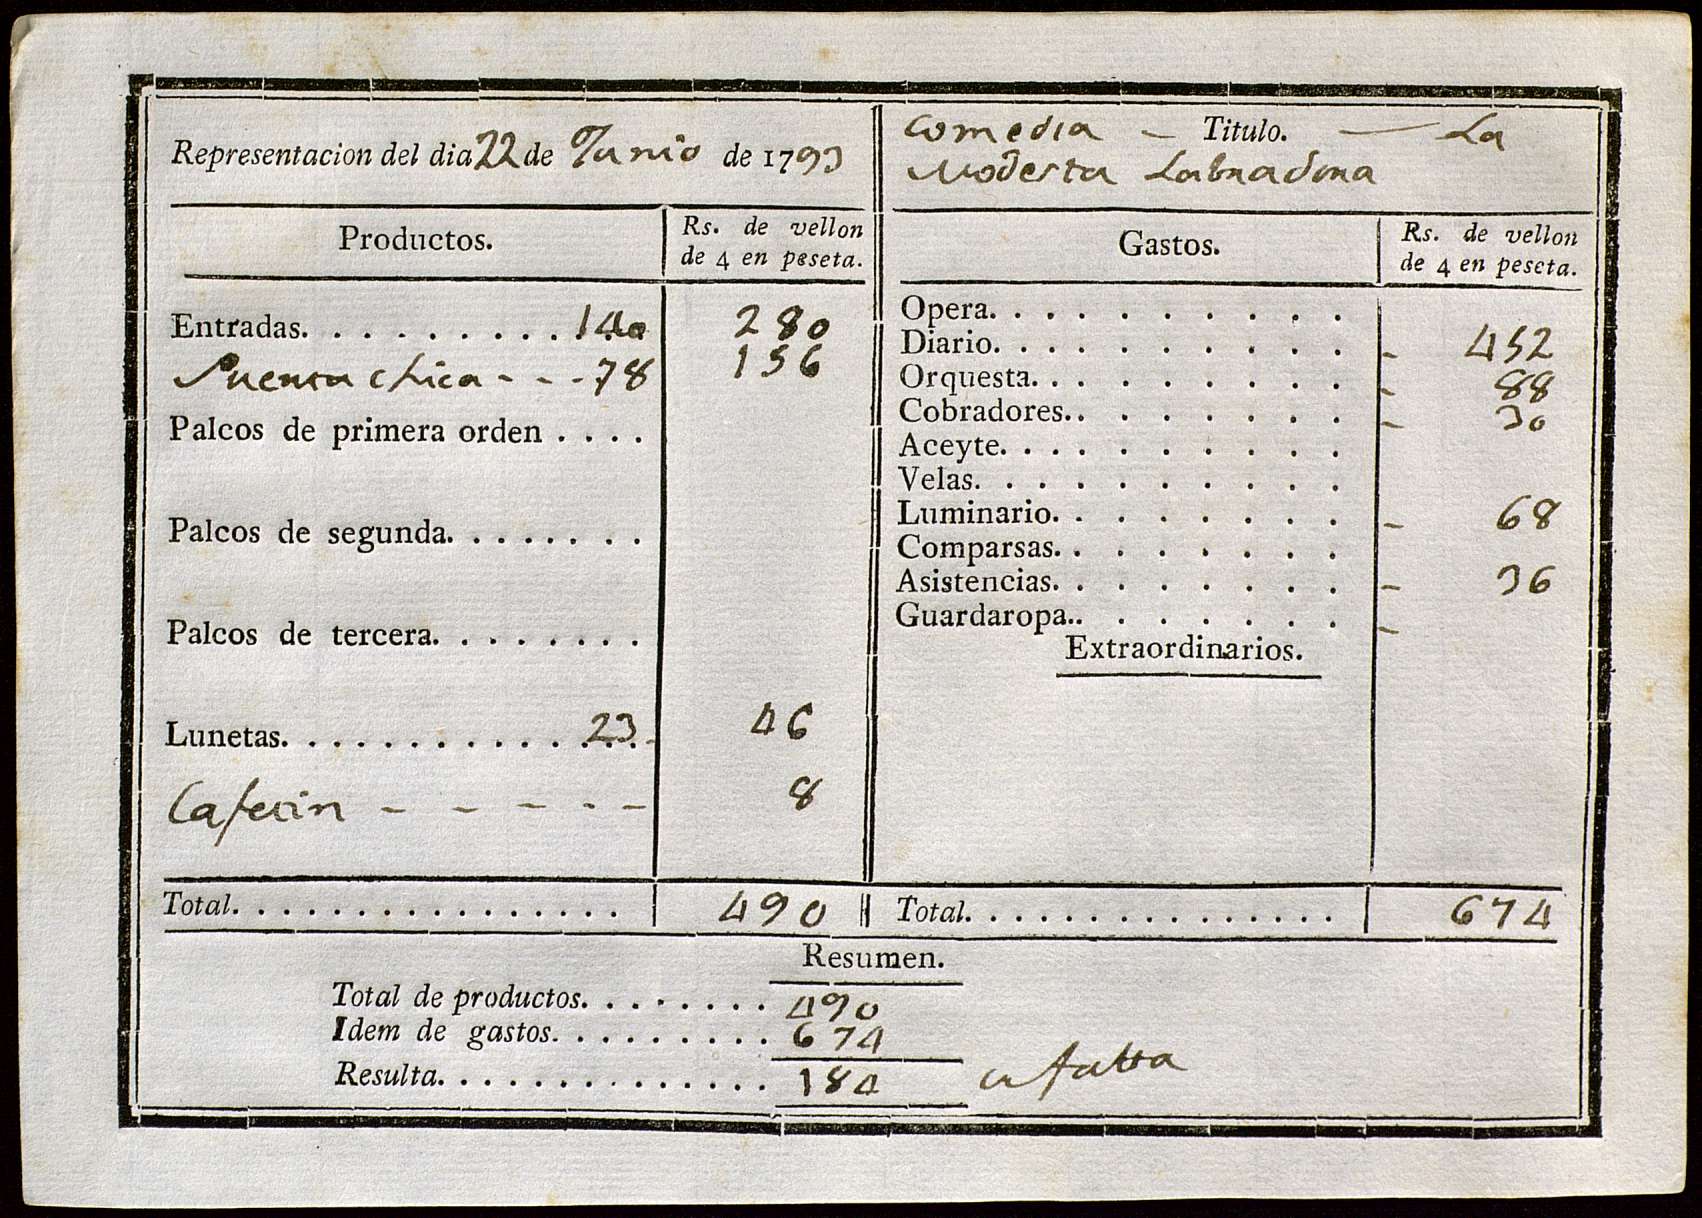 Representacion del dia 22 de Junio de 1793
Productos.
Rs. de vellon
de 4 en peseta.
Entradas. . . . . . . . . . 140 280
Puerta chica - - - 78 156
Palcos de primera orden . . . .
Palcos de segunda. . . . . . . .
Palcos de tercera. . . . . . . .
Lunetas. . . . . . . . . . . . . . 23 46
8
Total. . . . . . . . . . . . . . . . 490
Comedia - Titulo. - La
Modesta Labradora
Gastos.
Rs. de vellon
de 4 en peseta.
Opera. . . . . . . . . .
Diario. . . . . . . . . . - 452
Orquesta. . . . . . . . . - 88
Cobradores.. . . . . . . - 30
Aceyte. . . . . . . . . .
Velas. . . . . . . . . .
Luminario. . . . . . . . - 68
Comparsas. . . . . . . .
Asistencias. . . . . . . . - 36
Guardaropa.. . . . . . . -
Extraordinarios.
Total. . . . . . . . . . . . . . . 674
Resumen.
Total de productos. . . . . . . . 490
Idem de gastos. . . . . . . . . 674
Resulta. . . . . . . . . . . . . . 184 falta